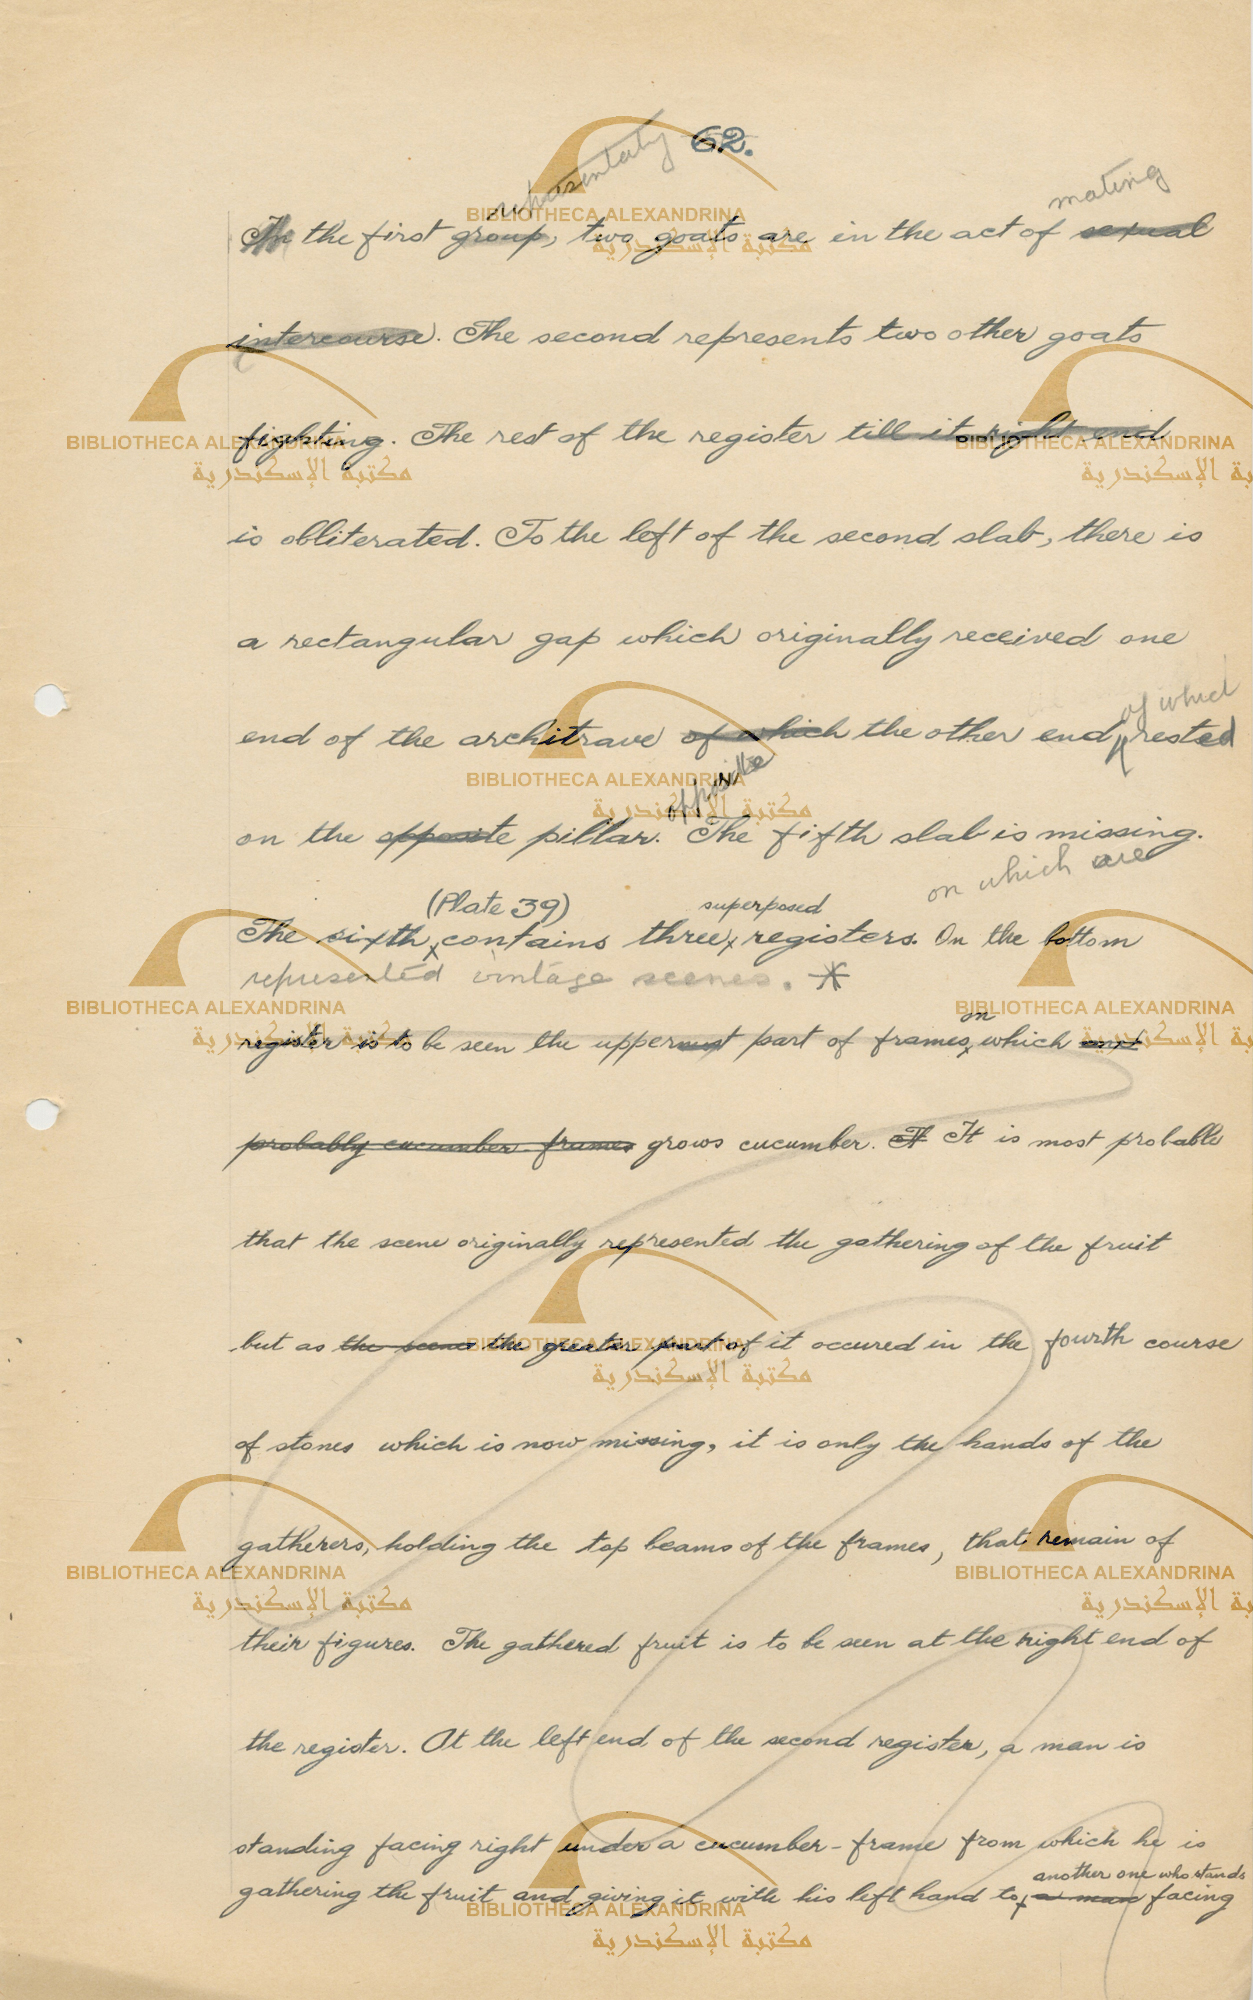 62.
representaty mating
In the first group, two goats are in the act of sexual
intercourse. The second represents two other goats
fighting. The rest of the register till it right end
is obliterated. To the left of the second slab, there is
a rectangular gap which originally received one
of which
end of the architrave of which the other end rested
opposite
on the opposite pillar. The fifth slab is missing.
on which are
(Plate 39) superposed
The sixth contains three registers. On the bottom
represented vintage scenes. *
on
register is to be seen the uppermost part of frames which and
probably cucumber frames grows cucumber. It It is most probable
that the scene originally represented the gathering of the fruit
but as the scene the greater part of it occured in the fourth course
of stones which is now missing, it is only the hands of the
gatherers, holding the top beams of the frames, that remain of
their figures. The gathered fruit is to be seen at the right end of
the register. At the left end of the second register, a man is
standing facing right under a cucumber-frame from which he is
another one who stands
gathering the fruit and giving it with his left hand to a man facing
BIBLIOTHECA ALEXANDRINA
مكتبة الإسكندرية